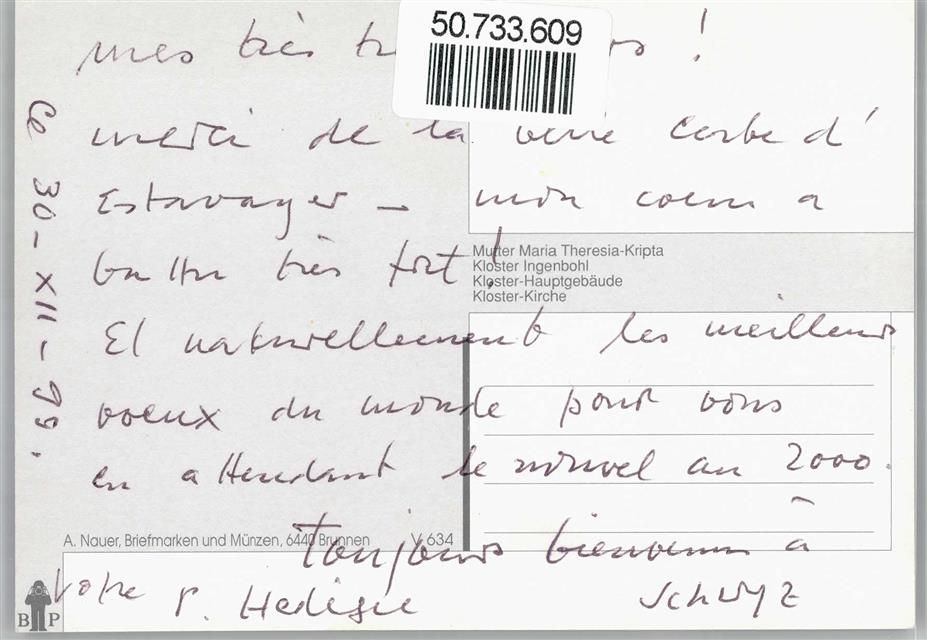 50.733.609
mes très
!
merci de la carte d'
Estavayer – mon coeur a
battu très fort!
Et naturellement les meilleurs
voeux du monde pour vous
en attendant le nouvel an 2000.
toujours bienvenus à
Schwyz
Votre P.
Ce 30–XII–99.
Mutter Maria Theresia-Kripta
Kloster Ingenbohl
Kloster-Hauptgebäude
Kloster-Kirche
A. Nauer, Briefmarken und Münzen, 6440 Brunnen V 634
B P